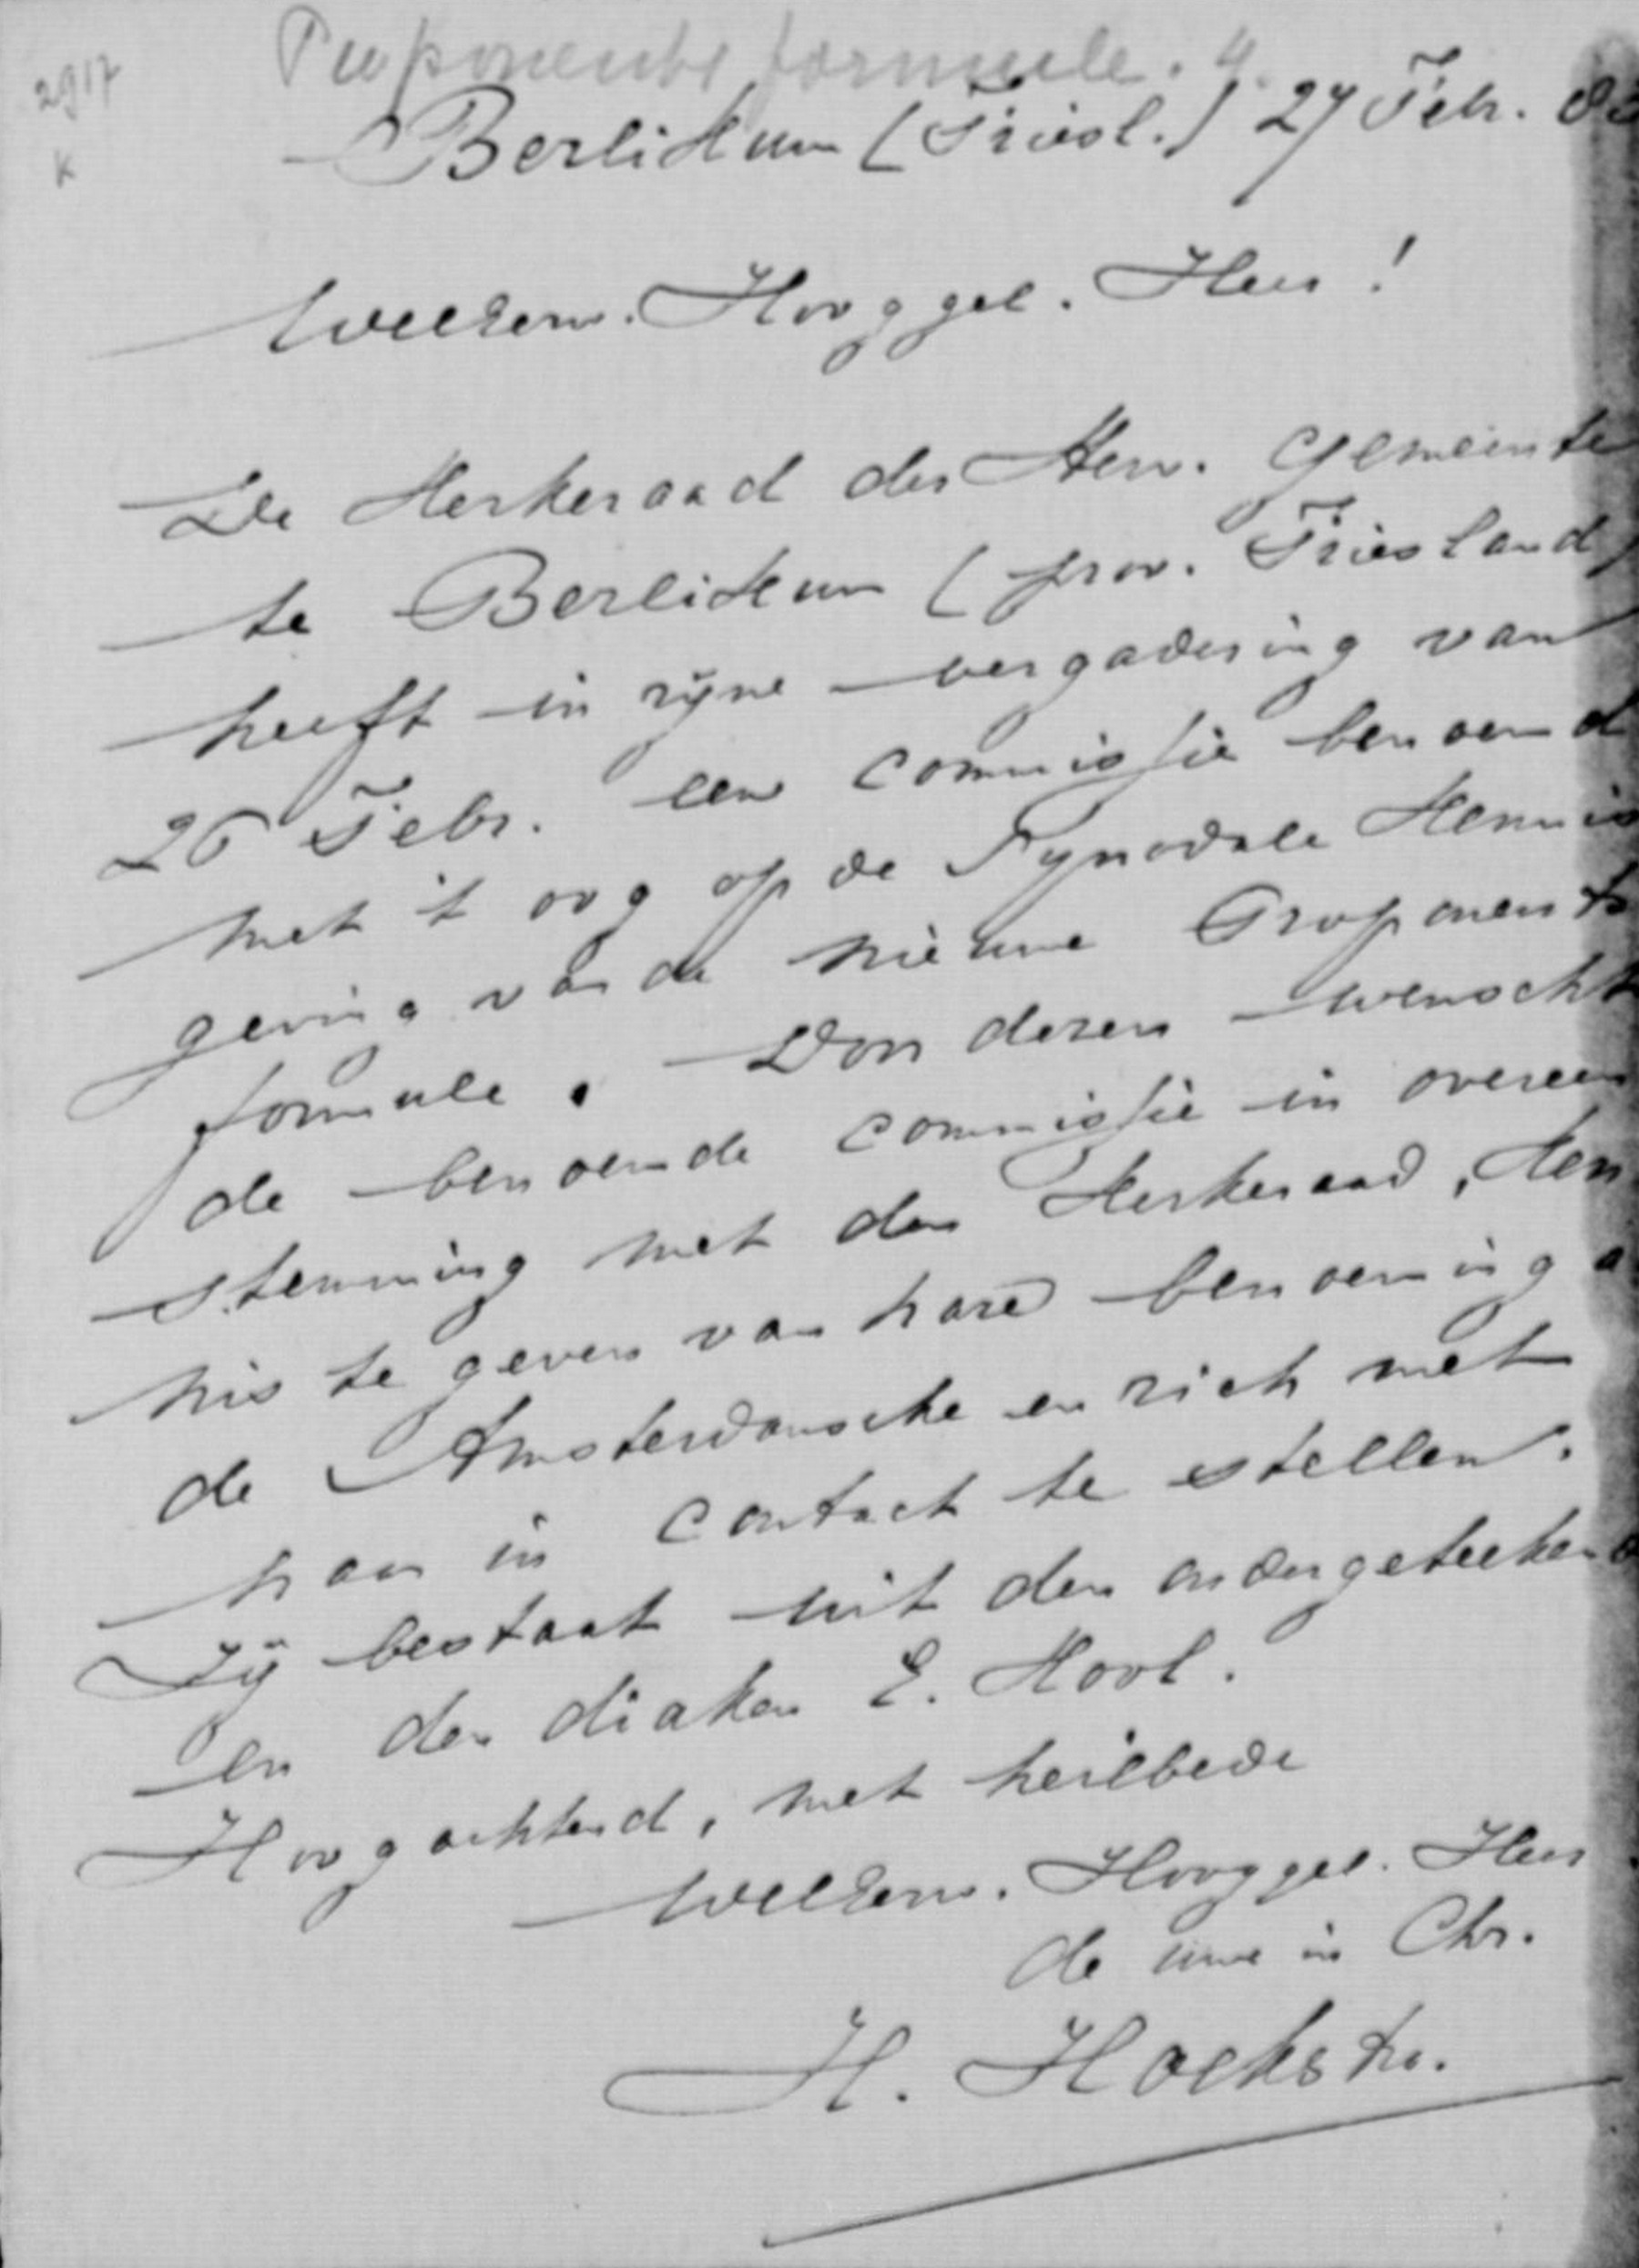 2917
K
Proponents formule. 4.
Berlikum (Friesl.) 27 Febr.
WelEerw. Hooggel. Heer!
De Kerkeraad der Herv. Gemeente
te Berlikum (prov. Friesland)
heeft in zijne vergadering van
26 Febr. een commissie benoemd
met 't oog op de Synodale Kennis
geving van de nieuwe Proponents
formule. Door dezen wenscht
de benoemde commissie in overeen
stemming met den Kerkeraad, ken
nis te geven van hare benoeming a
de Amsterdamsche en zich met
haar in contact te stellen.
Zij bestaat uit den ondergeteekende
en den diaken E. Kool.
Hoogachtend, met heilbede
WelEerw. Hooggel. Heer
de uwe in Chr.
H. Hoekstra.